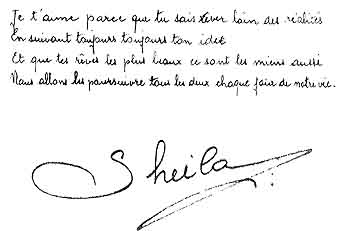 Je t'aime parce que tu sais rêver loin des réalités
En suivant toujours toujours ton idée
Et que tes rêves les plus beaux ce sont les miens aussi
Nous allons les poursuivre tous les deux chaque jour de notre vie.
Sheila